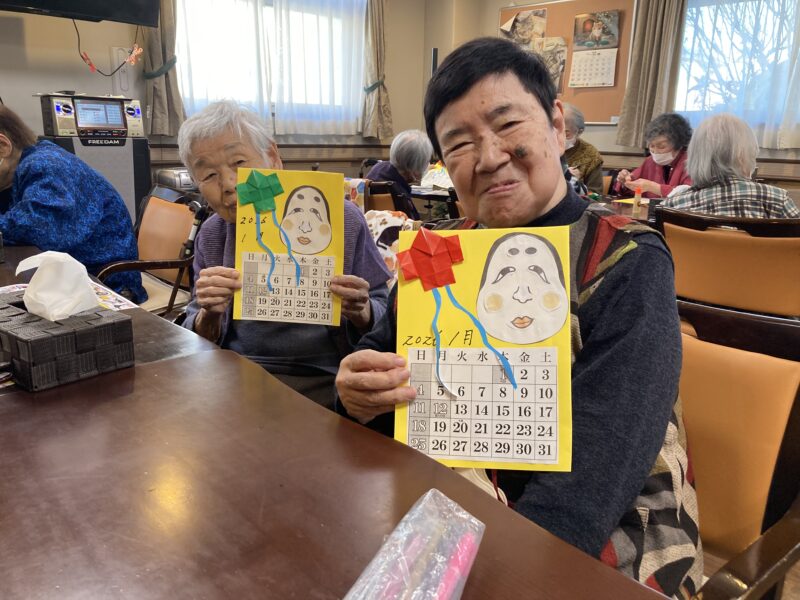 FREEDAM
2026
1月
日 月 火 水 木 金 土
1 2 3
4 5 6 7 8 9 10
11 12 13 14 15 16 17
19 20 21 22 23 24
26 27 28 29 30
2026 1月
日 月 火 水 木 金 土
1 2 3
4 5 6 7 8 9 10
11 12 13 14 15 16 17
18 19 20 21 22 23 24
25 26 27 28 29 30 31